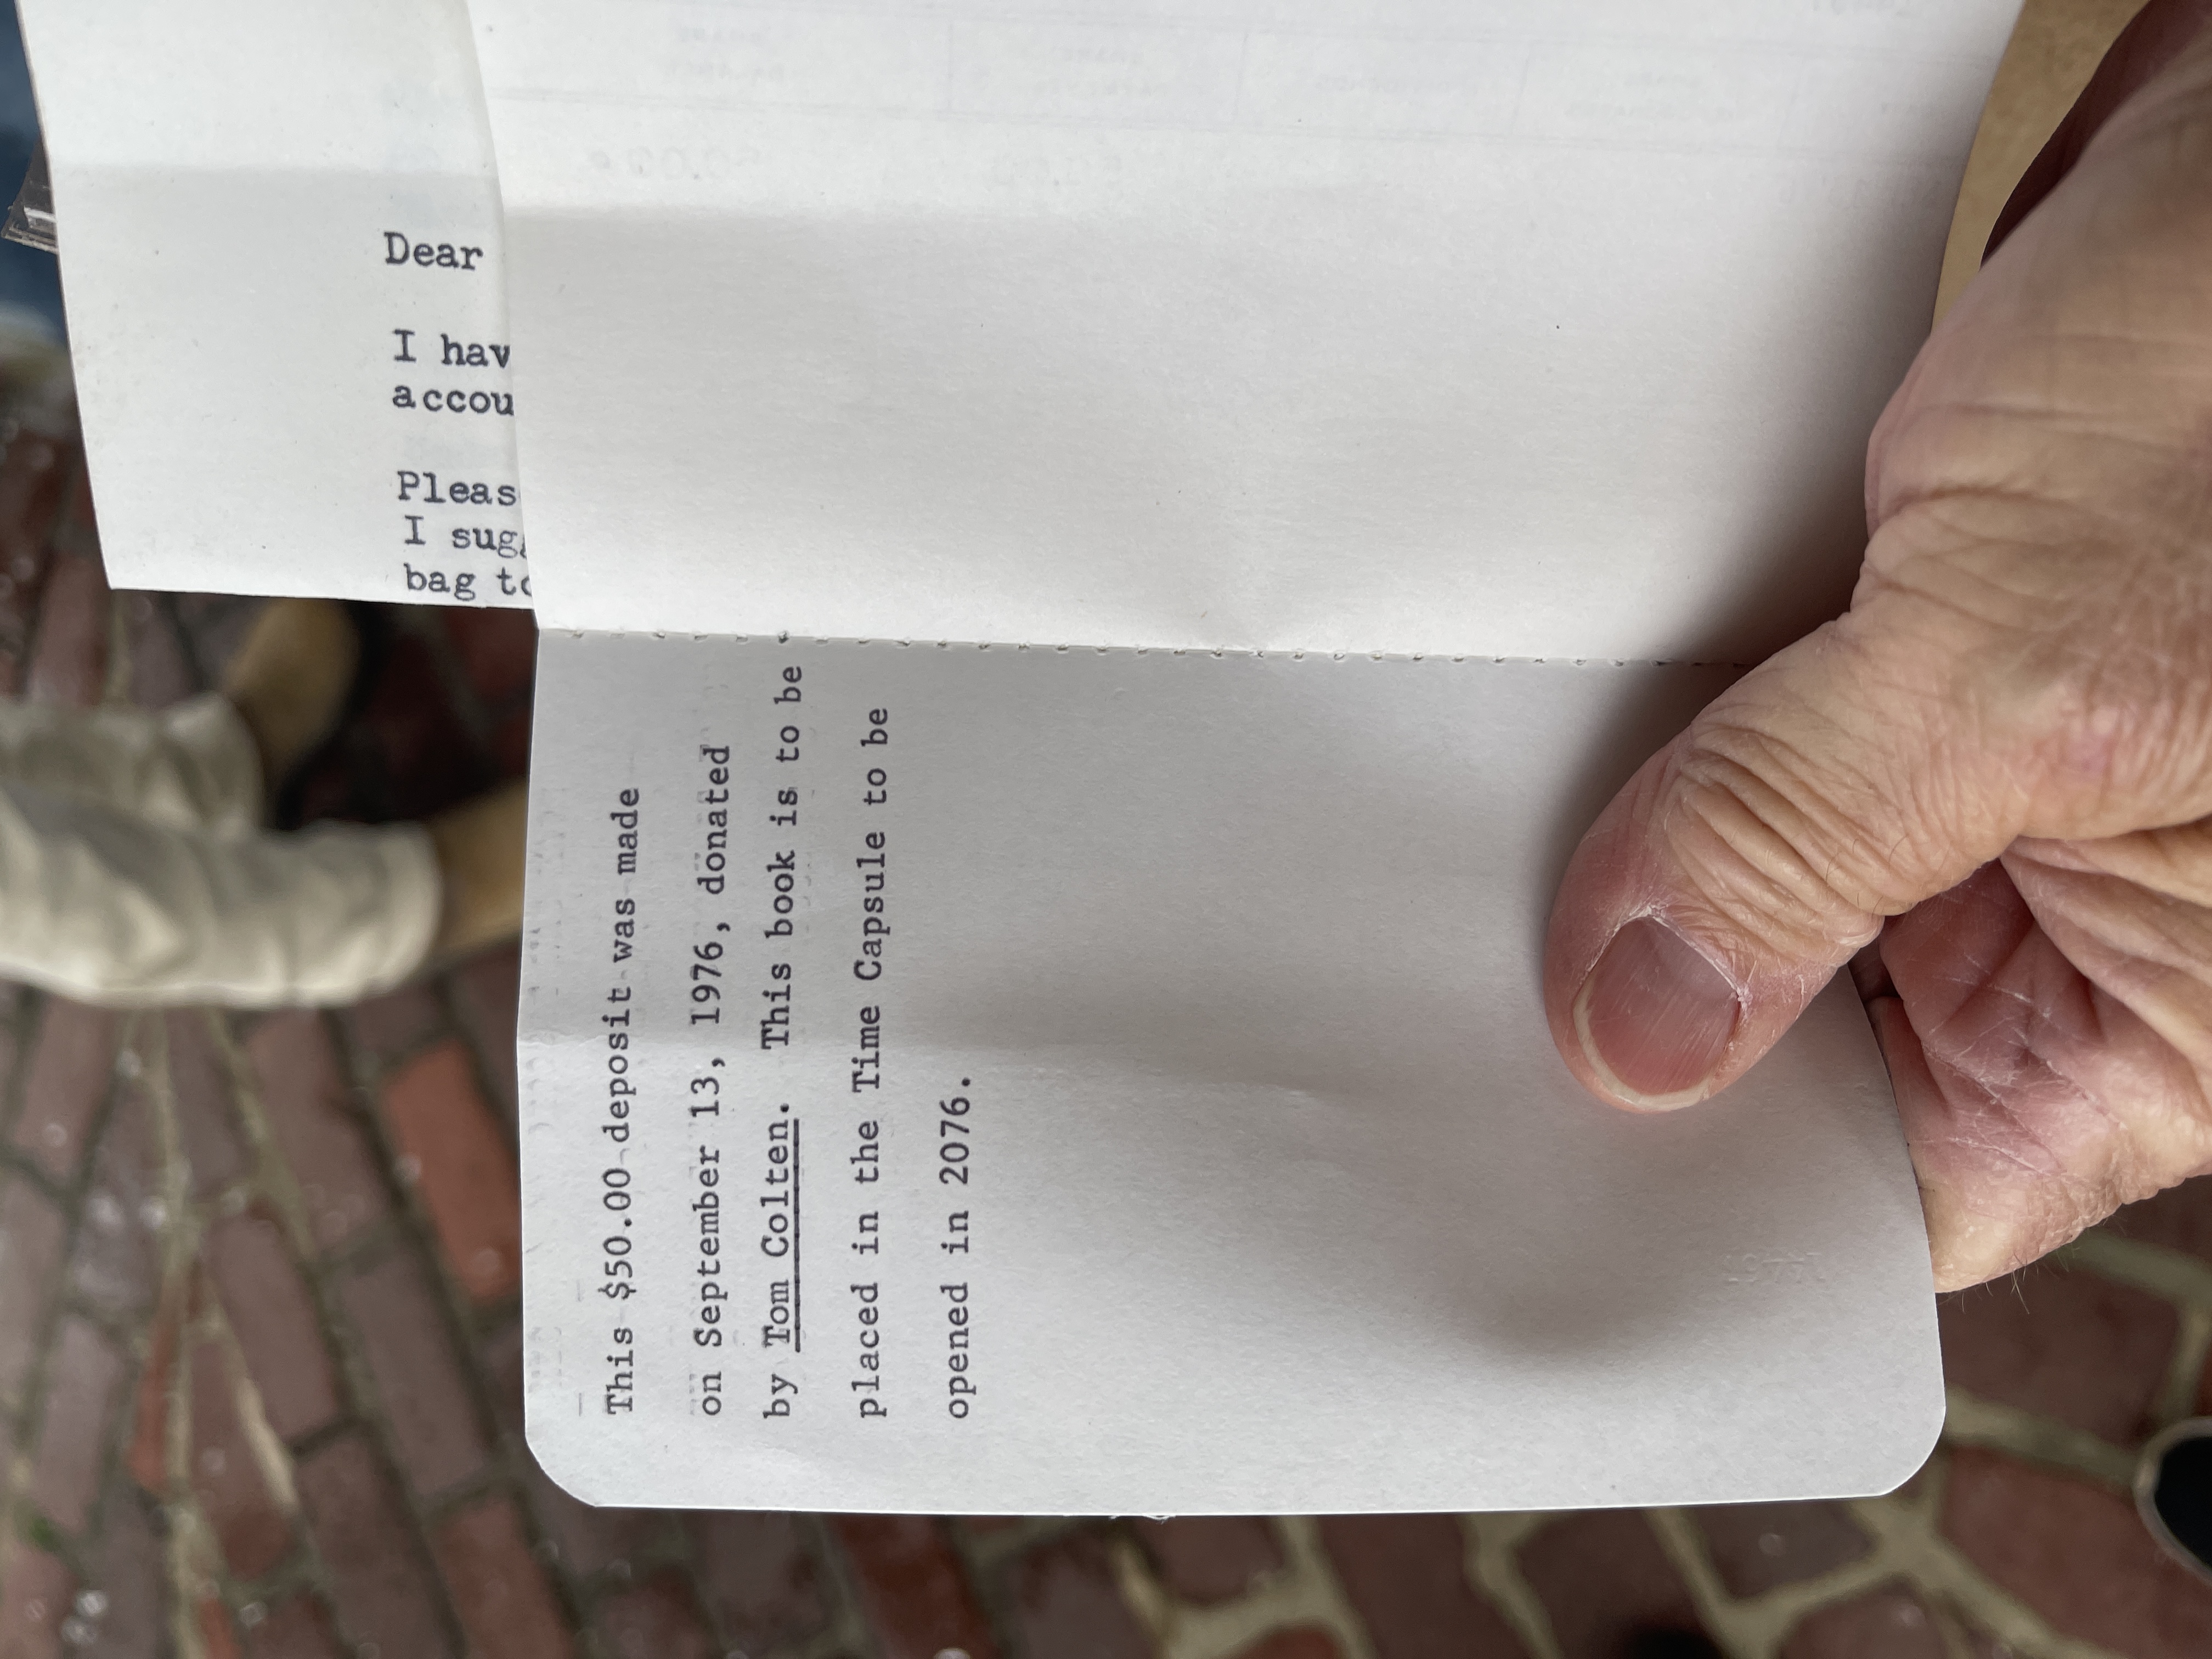 Dear
I hav
accou
Pleas
I sugg
bag to
This $50.00 deposit was made
on September 13, 1976, donated
by Tom Colten. This book is to be
placed in the Time Capsule to be
opened in 2076.